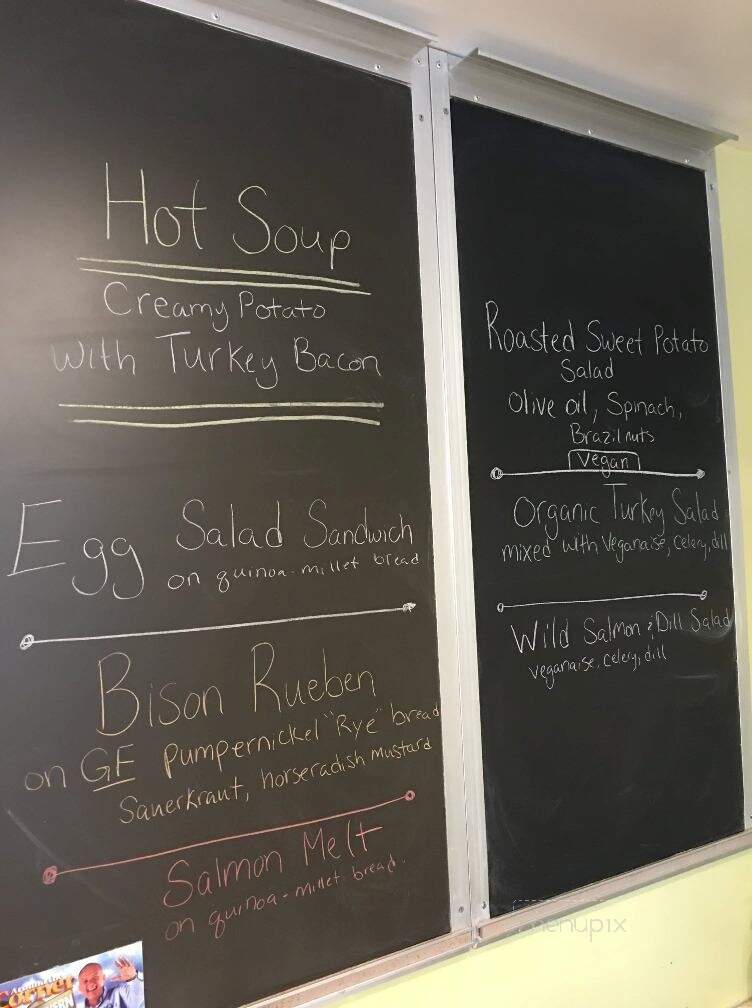 Hot Soup
Creamy Potato
with Turkey Bacon
Egg Salad Sandwich
on quinoa-millet bread
Bison Rueben
on GF pumpernickel "Rye" bread
Sauerkraut, horseradish mustard
Salmon Melt
on quinoa-millet bread.
Roasted Sweet Potato
Salad
Olive oil, Spinach,
Brazil nuts
Vegan
Organic Turkey Salad
mixed with Veganaise, celery, dill
Wild Salmon & Dill Salad
veganaise, celery, dill
Corner
menupix